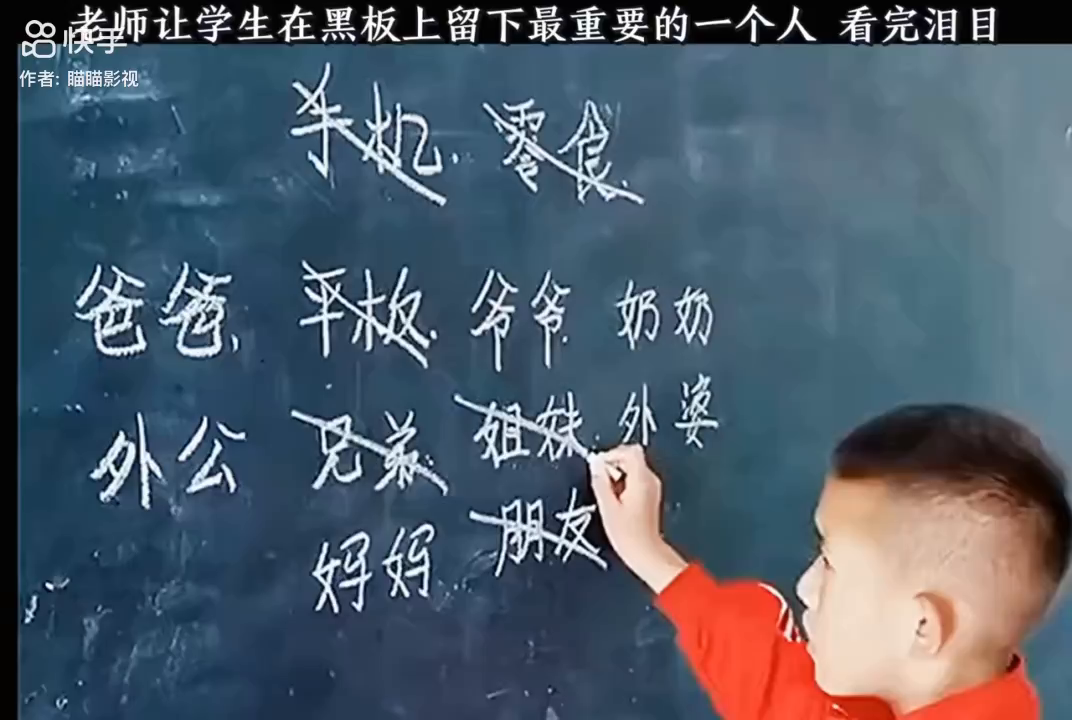 老师让学生在黑板上留下最重要的一个人 看完泪目
快手
作者: 瞄瞄影视
手机. 零食.
爸爸. 平板. 爷爷. 奶奶
外公 兄弟. 姐妹. 外婆
妈妈 朋友